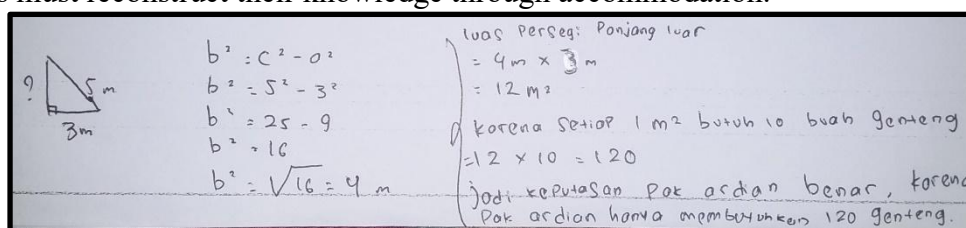 s must reconstruct their knowledge through accommodation.
?
5 m
3m
b² : c² - a²
b² = 5² - 3²
b² = 25 - 9
b² = 16
b² = √16 = 4 m
luas Persegi Panjang luar
= 4m × 3 m
= 12 m²
karena setiap 1 m² butuh 10 buah genteng
=12 × 10 = 120
jadi keputasan Pak ardian benar, karena
Pak ardian hanya membutuhkan 120 genteng.